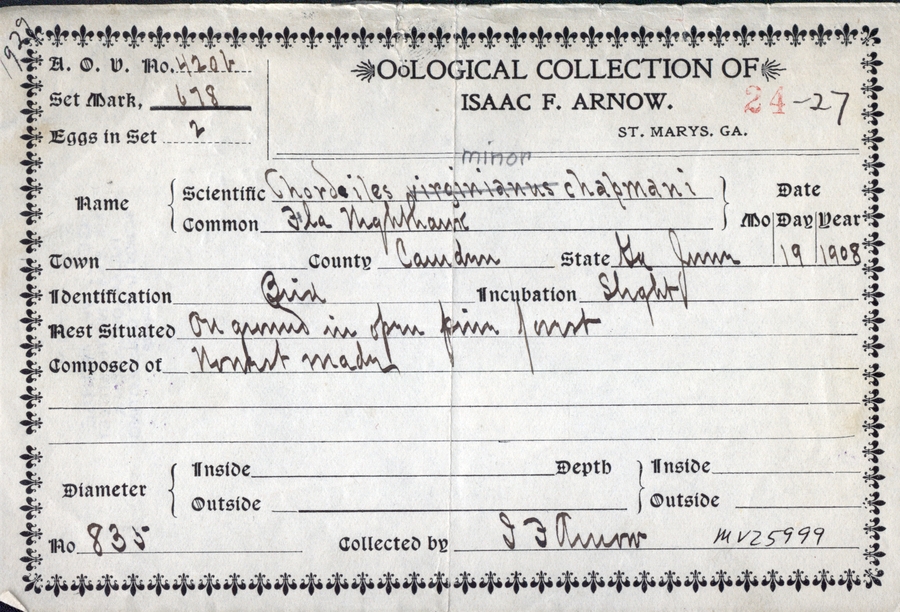 1929
A. O. U. No. 420b
OöLOGICAL COLLECTION OF
Set Mark, 678
ISAAC F. ARNOW.
24-27
Eggs in Set 2
ST. MARYS. GA.
minor
Name Scientific Chordeiles virginianus chapmani Date
Common Fla Nighthawk Mo Day Year
Town County Camden State Ga June 19 1908
Identification Bird Incubation Slight
Nest Situated On ground in open pine forest
Composed of No nest made
Diameter Inside Depth Inside
Outside Outside
No 835 Collected by I F Arnow MVZ5999